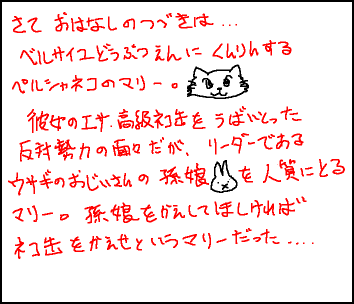 さて おはなしのつづきは...
ベルサイユどうぶつえんに くんりんする
ペルシャネコのマリー。
彼女のエサ、高級ネコ缶をうばいとった
反対勢力の面々だが、リーダーである
ウサギのおじいさんの 孫娘を人質にとる
マリー。孫娘をかえしてほしければ
ネコ缶をかえせというマリーだった....